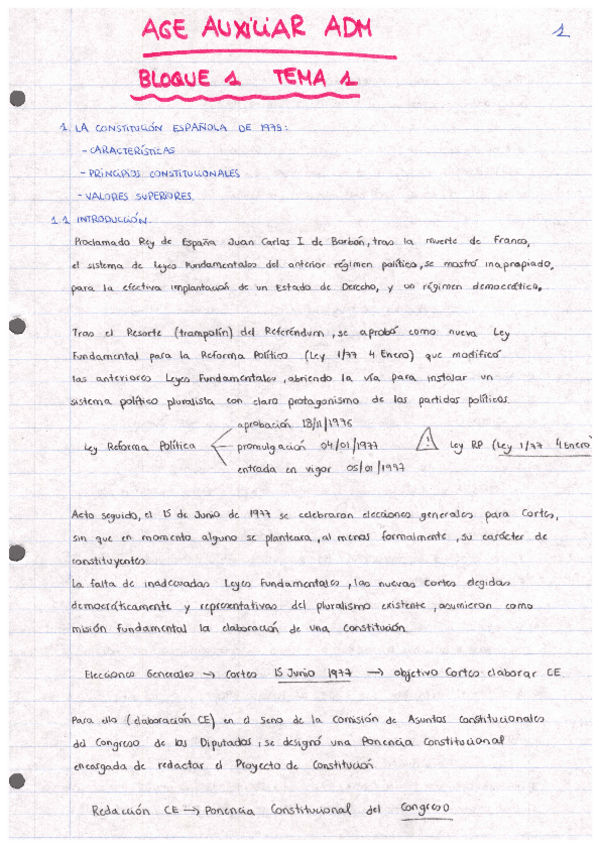 AGE AUXILIAR ADM
1
BLOQUE 1 TEMA 1
1. LA CONSTITUCIÓN ESPAÑOLA DE 1978:
- CARACTERÍSTICAS
- PRINCIPIOS CONSTITUCIONALES
- VALORES SUPERIORES
1.1 INTRODUCCIÓN.
Proclamado Rey de España Juan Carlos I de Borbón, tras la muerte de Franco,
el sistema de leyes Fundamentales del anterior régimen político, se mostró inapropiado,
para la efectiva implantación de un Estado de Derecho, y un régimen democrático.
Tras el Resorte (trampolín) del Referéndum, se aprobó como nueva Ley
Fundamental para la Reforma Política (Ley 1/77 4 Enero) que modificó
las anteriores Leyes Fundamentales, abriendo la vía para instalar un
sistema político pluralista con claro protagonismo de los partidos políticos.
aprobación 18/11/1976
Ley Reforma Política promulgación 04/01/1977 ! Ley RP (Ley 1/77 4 Enero)
entrada en vigor 05/01/1977
Acto seguido, el 15 de Junio de 1977 se celebraron elecciones generales para Cortes,
sin que en momento alguno se planteara, al menos formalmente, su carácter de
constituyentes.
La falta de inadecuadas Leyes Fundamentales, las nuevas cortes elegidas
democráticamente y representativas del pluralismo existente, asumieron como
misión fundamental la elaboración de una Constitución.
Elecciones Generales → Cortes 15 Junio 1977 → objetivo Cortes elaborar CE.
Para ello (elaboración CE) en el seno de la Comisión de Asuntos Constitucionales
del Congreso de los Diputados, se designó una Ponencia Constitucional
encargada de redactar el Proyecto de Constitución
Redacción CE → Ponencia Constitucional del Congreso